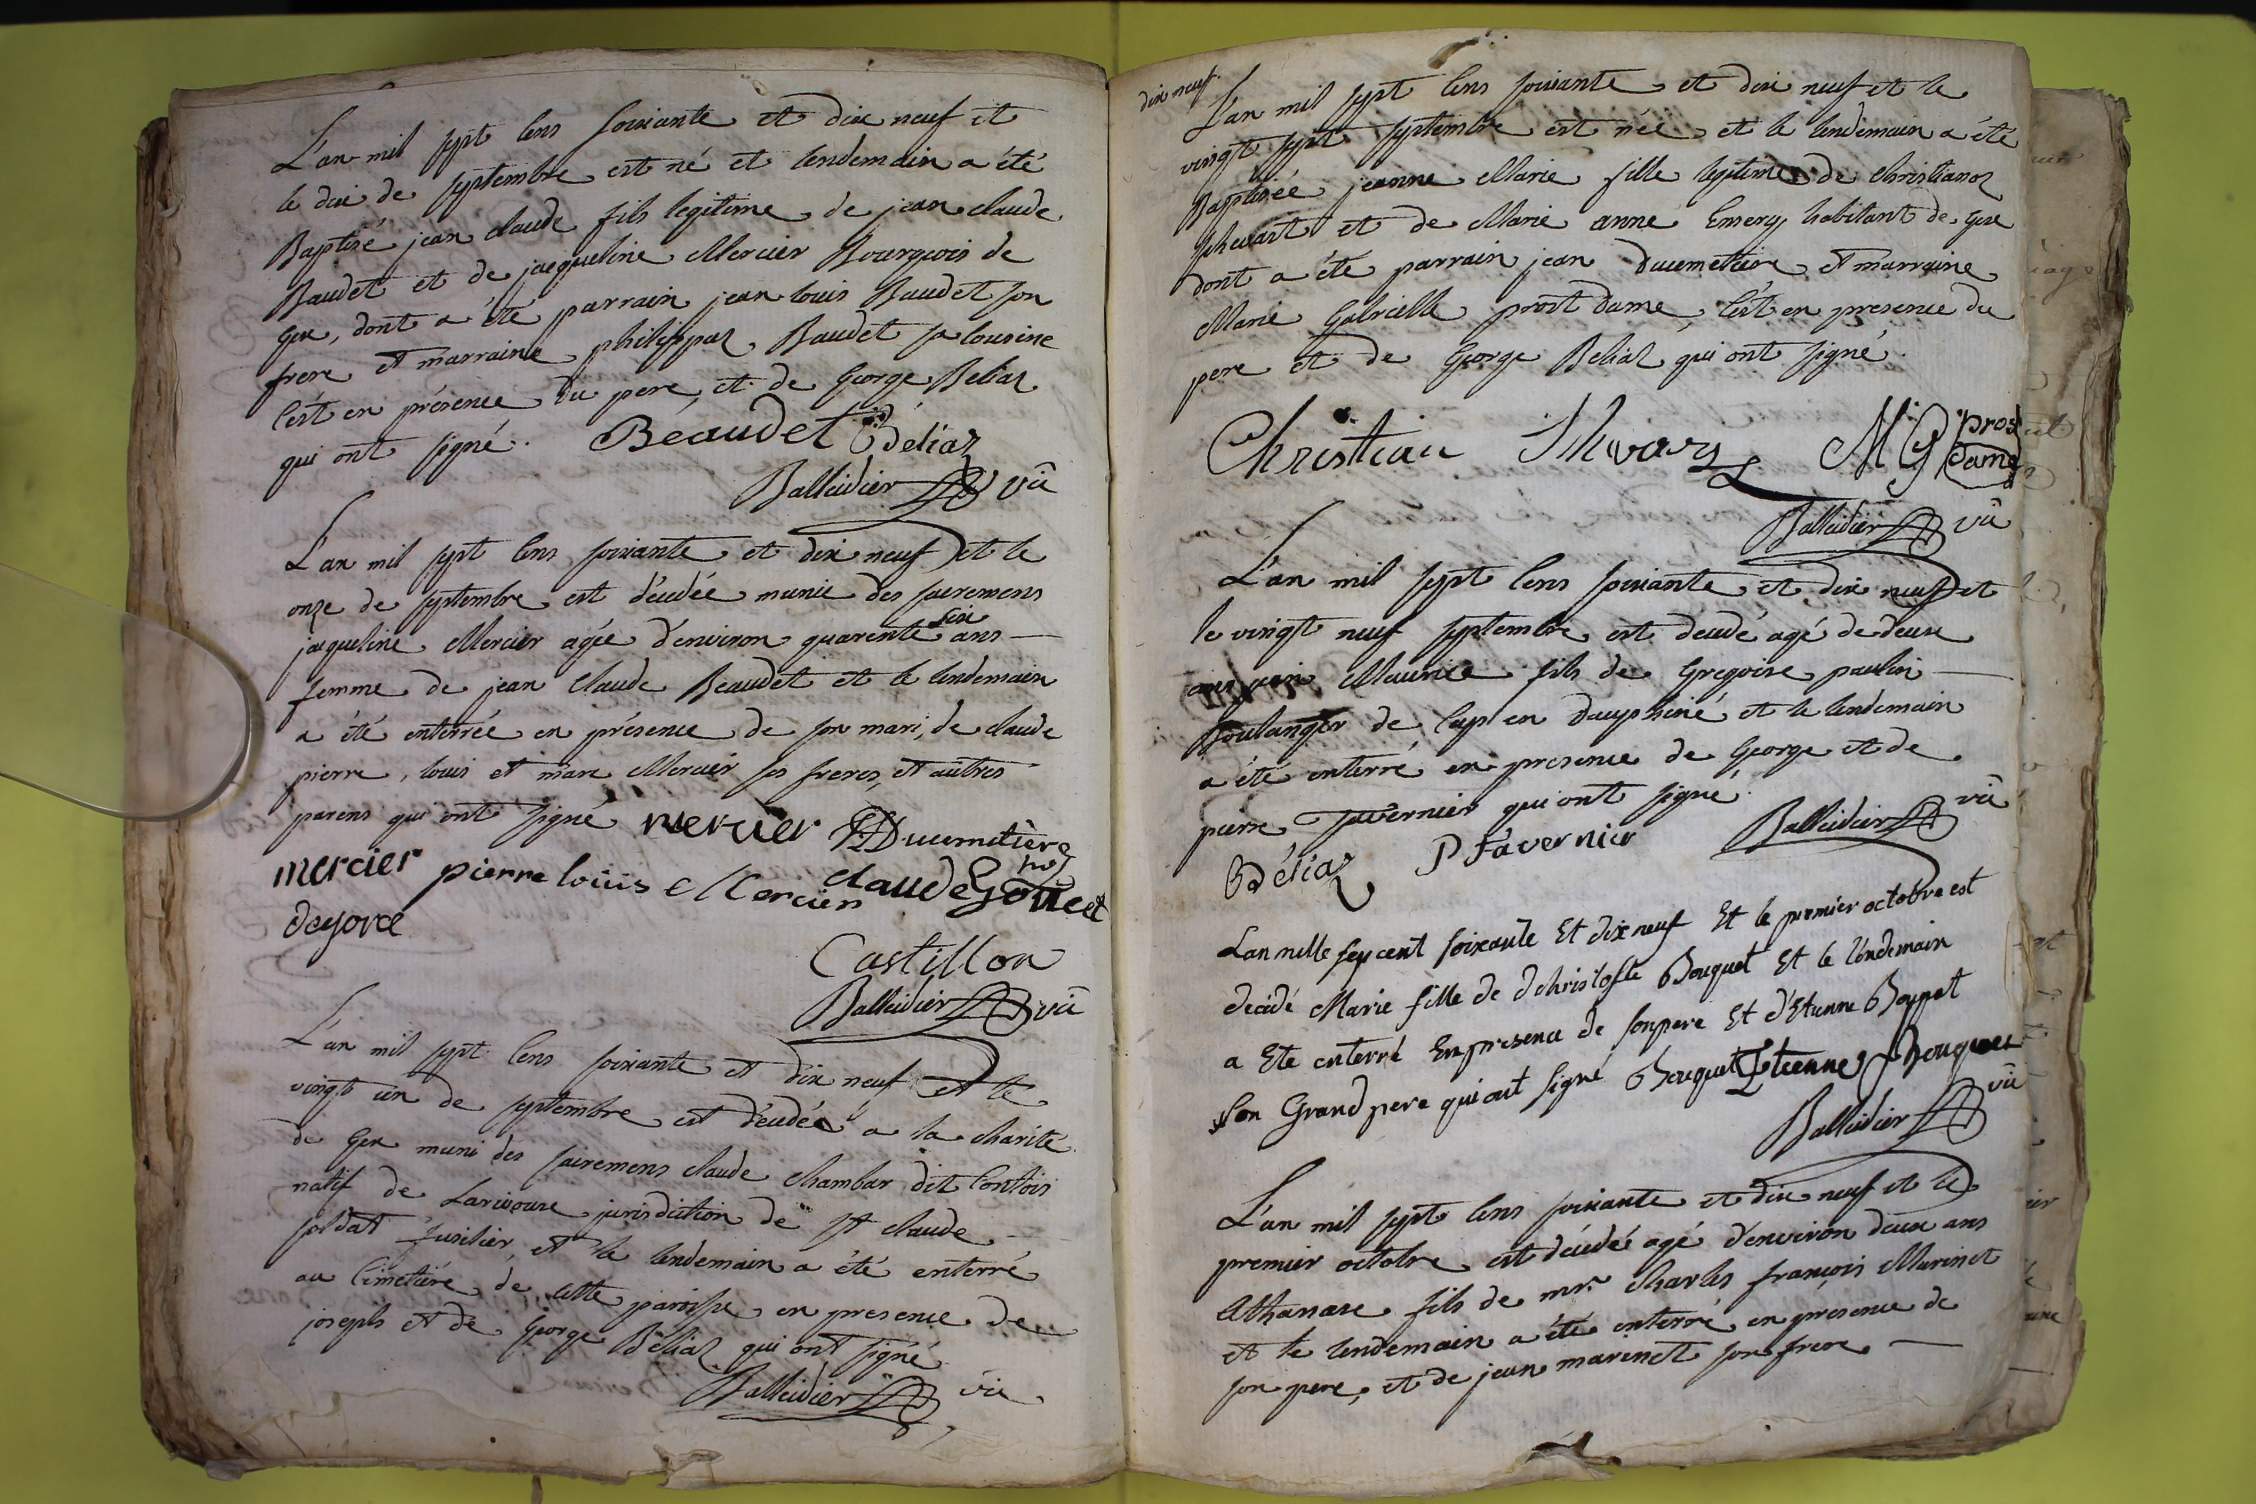 L'an mil sept Cens soixante et dix neuf et
le dix de septembre est né et lendemain a été
Baptisé jean claude fils legitime de jean claude
Baudet et de jacqueline Mercier Bourgeois de
Gex, dont a été parrain jean louis Baudet son
frere et marraine philippaz Baudet sa Cousine
C'est en présence du pere, et de George Beliaz
qui ont signé. Béaudet Béliaz
Balleidier vic
L'an mil sept Cens soixante et dix neuf et le
onze de septembre est décédée munie des sacremens
six
jacqueline Mercier agée d'environ quarente ans
femme de jean Claude Beaudet et le lendemain
a été enterrée en présence de son mari, de claude
pierre, louis et marc Mercier ses freres, et autres
parens qui ont signé mercier Ducimetière
mercier pierre loüis Mercier claude Gouet
deyorce
Castillon
Balleidier vic
L'an mil sept Cens soixante et dix neuf et le
vingt un de septembre est décédé a la charité
de Gex muni des sacremens claude chambar dit Contois
natif de Larivoure jurisdiction de St claude
soldat fusilier, et le lendemain a été enterré
au Cimetiére de cette paroisse en presence de
joseph et de George Béliaz qui ont signé
Balleidier vic
dix neuf.
L'an mil sept Cens soixante et dix neuf et le
vingt sept septembre est née et le lendemain a été
Baptisée jeanne Marie fille legitime de christianoz
schwart et de Marie anne Emery habitant de Gex
dont a été parrain jean Ducimetiere et marraine
Marie Gabrielle prost Dame, C'est en presence du
pere et de George Beliaz qui ont signé.
Christian Shwarz MG prost
Dame
Balleidier vic
L'an mil sept Cens soixante et dix neuf et
le vingt neuf septembre est decedé agé de deux
ans jean Maurice fils de Gregoire paulin
Boulanger de Cap en Dauphiné et le lendemain
a été enterré en presence de George et de
pierre Tavernier qui ont signé.
Béliaz P Tavernier Balleidier vic
Lan mille sep cent soixante Et dix neuf Et le premier octobre est
decidé Marie fille de Christofle Bouquet Et le l'endemain
a Ete enterré En presence de son pere Et d'Etienne Bouquet
son Grand pere qui ont signé Bouquet Etienne Bouquet
Balleidier vic
L'an mil sept Cens soixante et dix neuf et le
premier octobre est décédé agé d'environ deux ans
Athanase fils de mr. Charles françois Marinet
et le lendemain a été enterré en présence de
son pere, et de jean marinet son frere